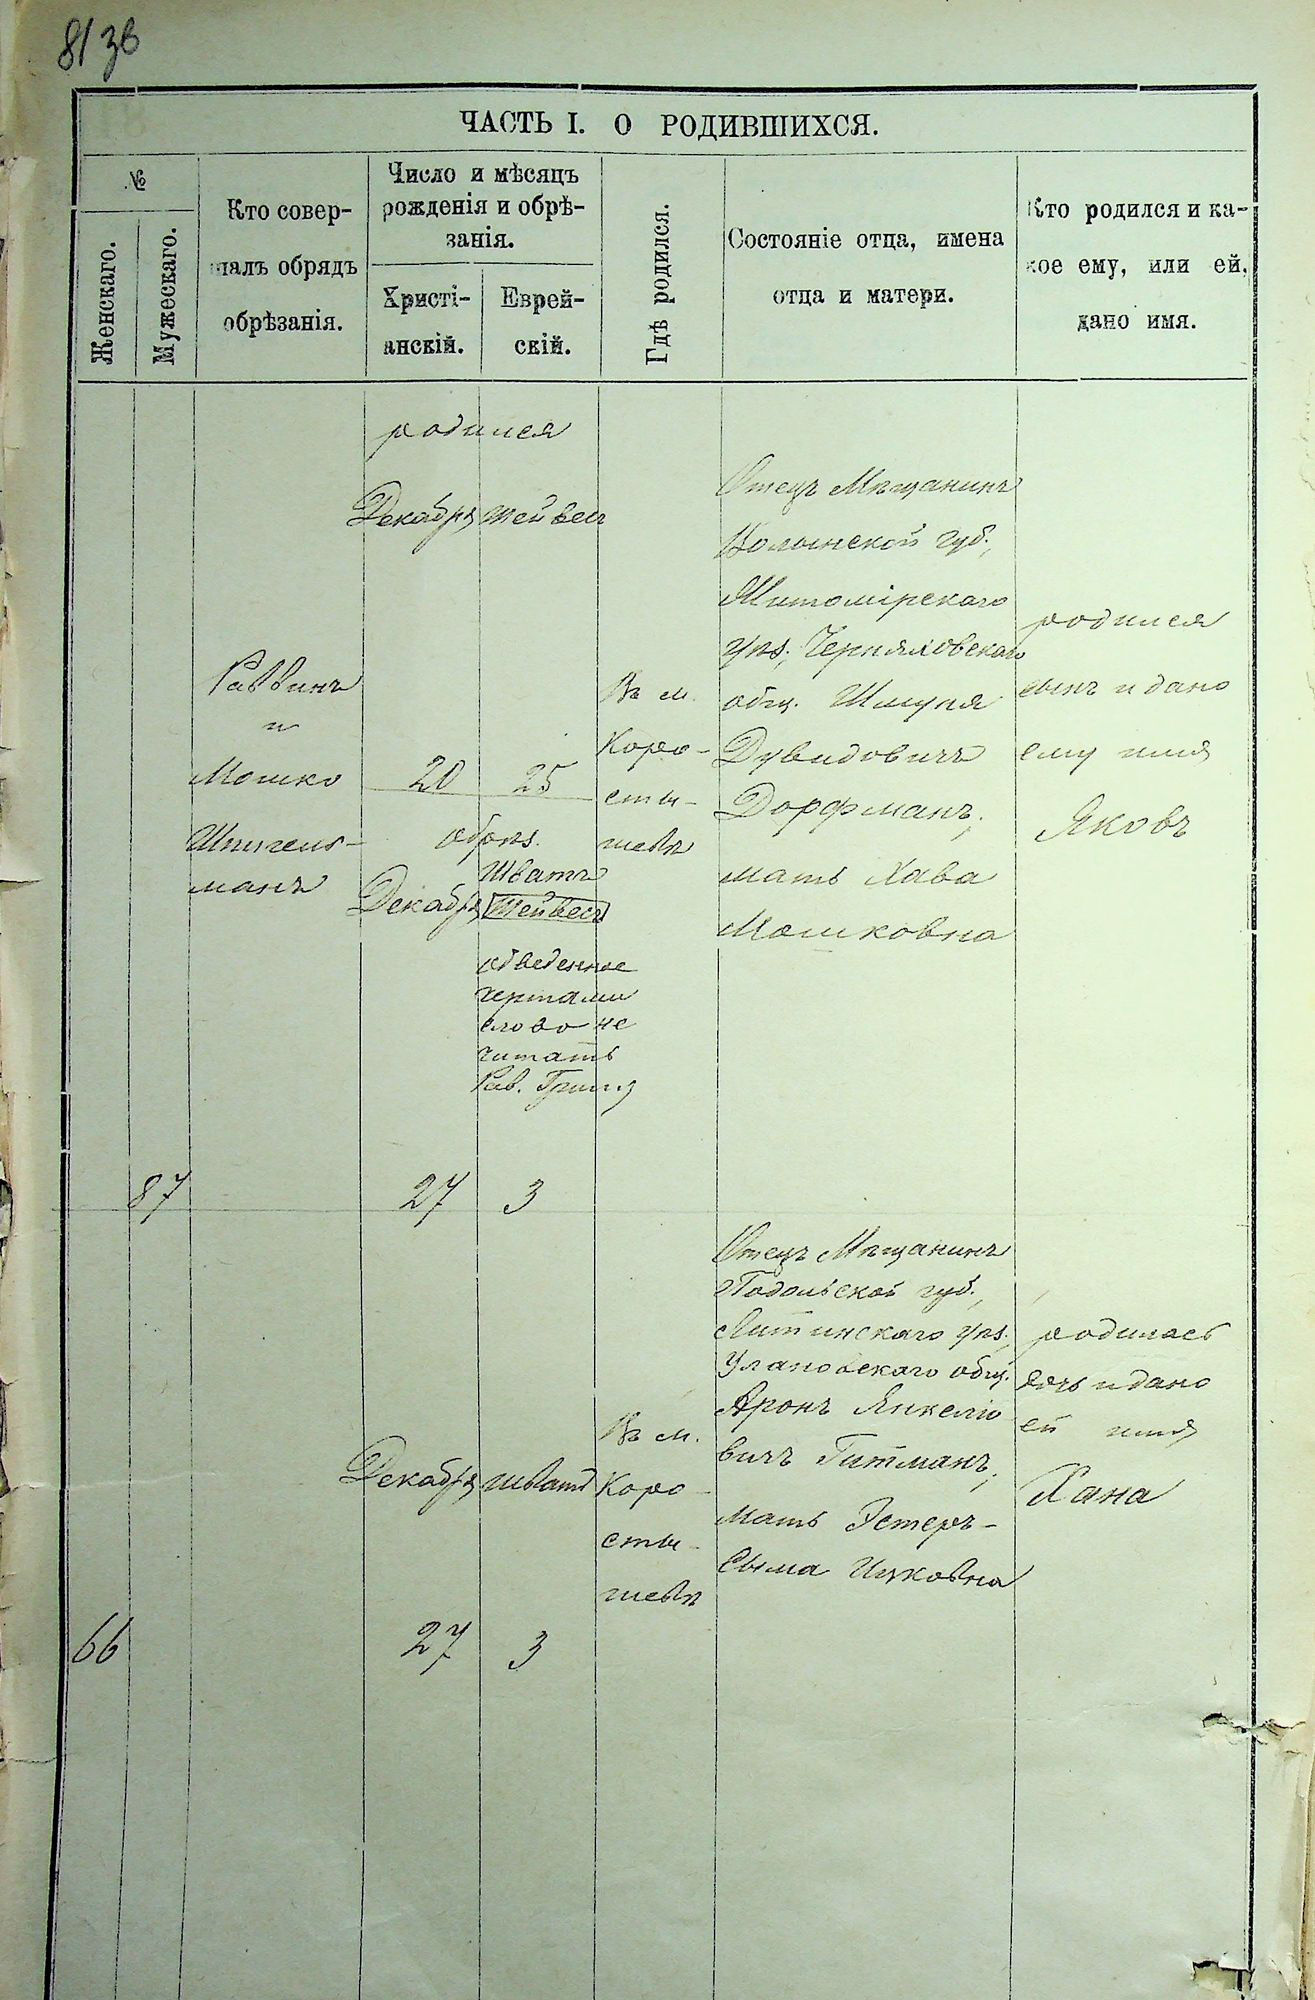 81 зв
ЧАСТЬ I. О РОДИВШИХСЯ.
№
Женскаго.
Мужескаго.
Кто совер-
шалъ обрядъ
обрѣзанія.
Число и мѣсяцъ
рожденія и обрѣ-
занія.
Христі-
анскій.
Еврей-
скій.
Гдѣ родился.
Состояніе отца, имена
отца и матери.
Кто родился и ка-
кое ему, или ей,
дано имя.
87
Раввинъ
и
Мошко
Шпигель-
манъ
родился
Декабря Тейвесъ
20 25
обрѣз.
Шватъ
Декабря Тейвесъ
обведенное
чертами
слово не
читать
Рав.
27 3
Въ м.
Коро-
сты-
шевѣ
Отецъ Мѣщанинъ
Волынской губ.,
Житомірскаго
уѣз., Черняховскаго
общ. Шмуля
Дувидовичъ
Дорфманъ,
мать Хава
Мошковна
родился
сынъ и дано
ему имя
Яковъ
66
Декабря Шватъ
27 3
Въ м.
Коро-
сты-
шевѣ
Отецъ Мѣщанинъ
Подольской губ.,
Литинскаго уѣз.,
Улановскаго общ.
Аронъ Янкеліо
вичъ Гитманъ,
мать Эстеръ-
Сыма Ицковна
родилась
дочь и дано
ей имя
Хана